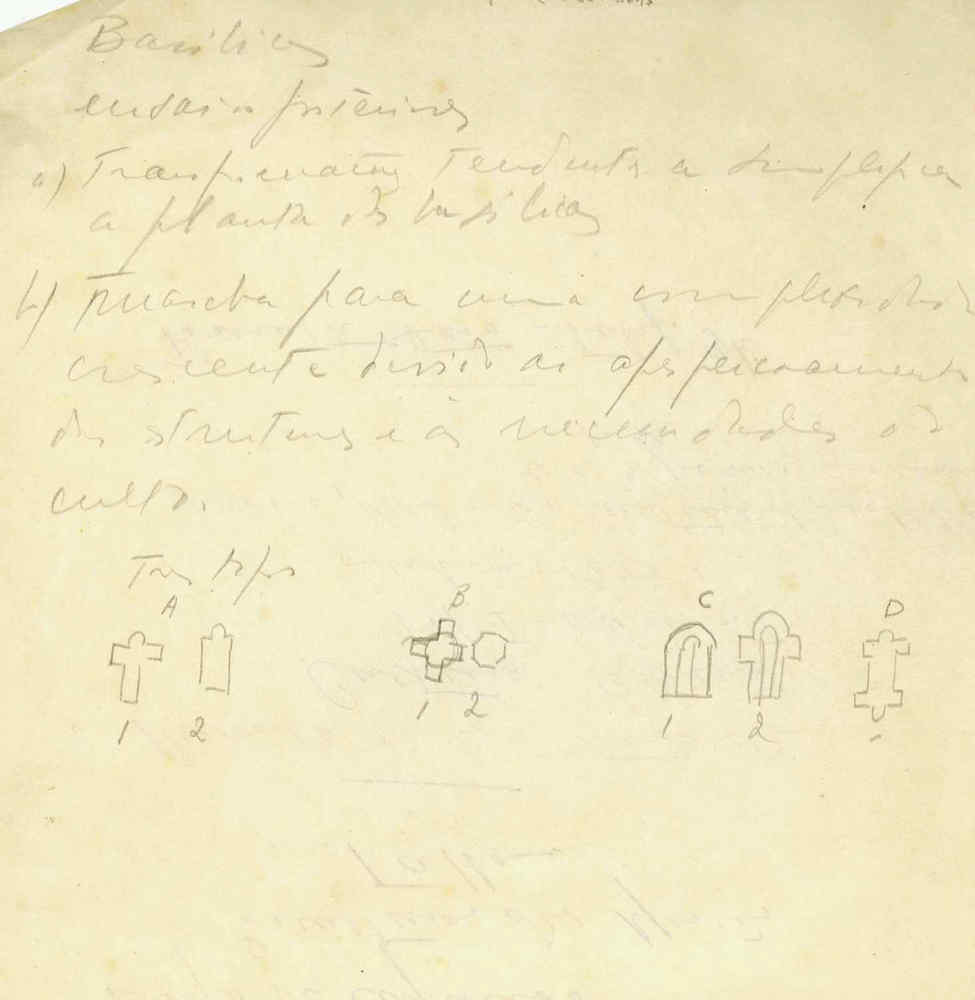 Basilicas
ensaios posteriores
a) Transformações tendentes a simplificar
a planta das basilicas
b) marcha para uma complexidade
crescente devido ao aperfeiçoamento
das estruturas e ás necessidades do
culto.
Tres tipos
A B C D
1 2 1 2 1 2